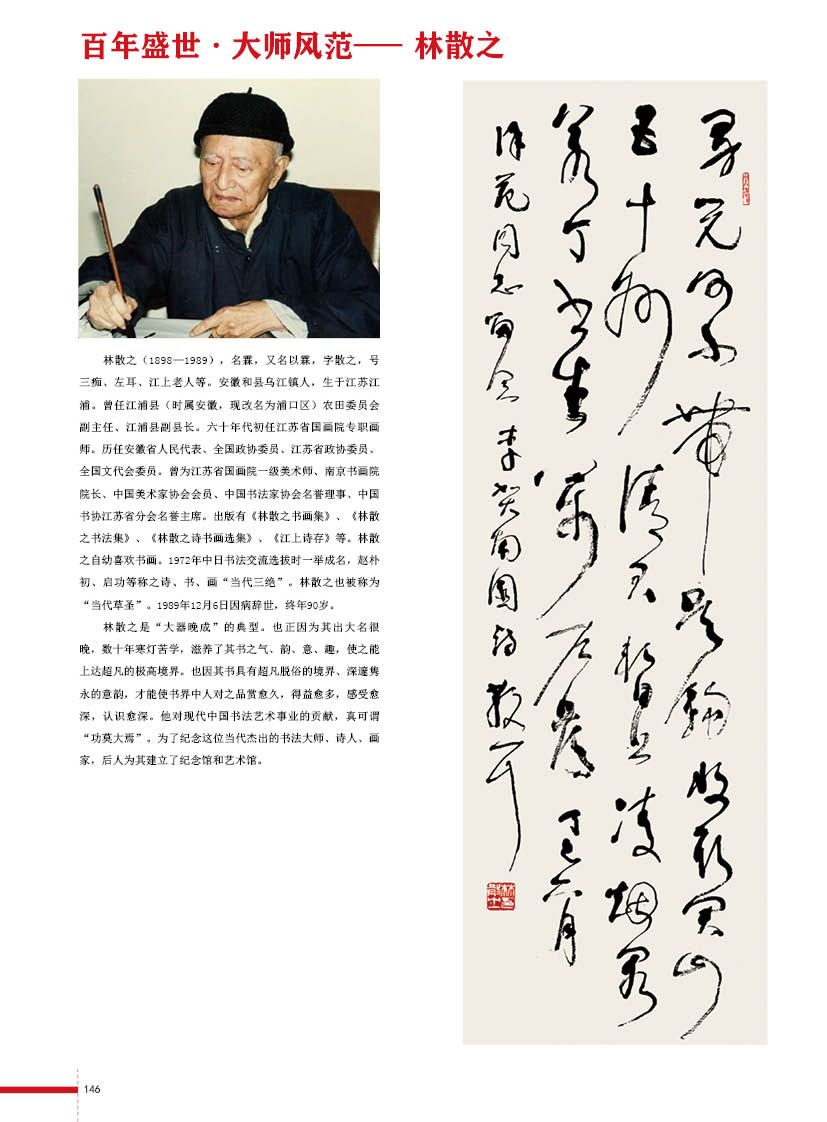 百年盛世·大师风范—— 林散之
林散之（1898—1989），名霖，又名以霖，字散之，号
三痴、左耳、江上老人等。安徽和县乌江镇人，生于江苏江
浦。曾任江浦县（时属安徽，现改名为浦口区）农田委员会
副主任、江浦县副县长。六十年代初任江苏省国画院专职画
师。历任安徽省人民代表、全国政协委员、江苏省政协委员、
全国文代会委员。曾为江苏省国画院一级美术师、南京书画院
院长、中国美术家协会会员、中国书法家协会名誉理事、中国
书协江苏省分会名誉主席。出版有《林散之书画集》、《林散
之书法集》、《林散之诗书画选集》、《江上诗存》等。林散
之自幼喜欢书画。1972年中日书法交流选拔时一举成名，赵朴
初、启功等称之诗、书、画“当代三绝”。林散之也被称为
“当代草圣”。1989年12月6日因病辞世，终年90岁。
林散之是“大器晚成”的典型。也正因为其出大名很
晚，数十年寒灯苦学，滋养了其书之气、韵、意、趣，使之能
上达超凡的极高境界。也因其书具有超凡脱俗的境界、深邃隽
永的意韵，才能使书界中人对之品赏愈久，得益愈多，感受愈
深，认识愈深。他对现代中国书法艺术事业的贡献，真可谓
“功莫大焉”。为了纪念这位当代杰出的书法大师、诗人、画
家，后人为其建立了纪念馆和艺术馆。
男儿何不带吴钩收取关山
五十州请君暂上凌烟阁
若个书生万户侯 丁巳六月
同志留念 李贺南园诗 散耳
146